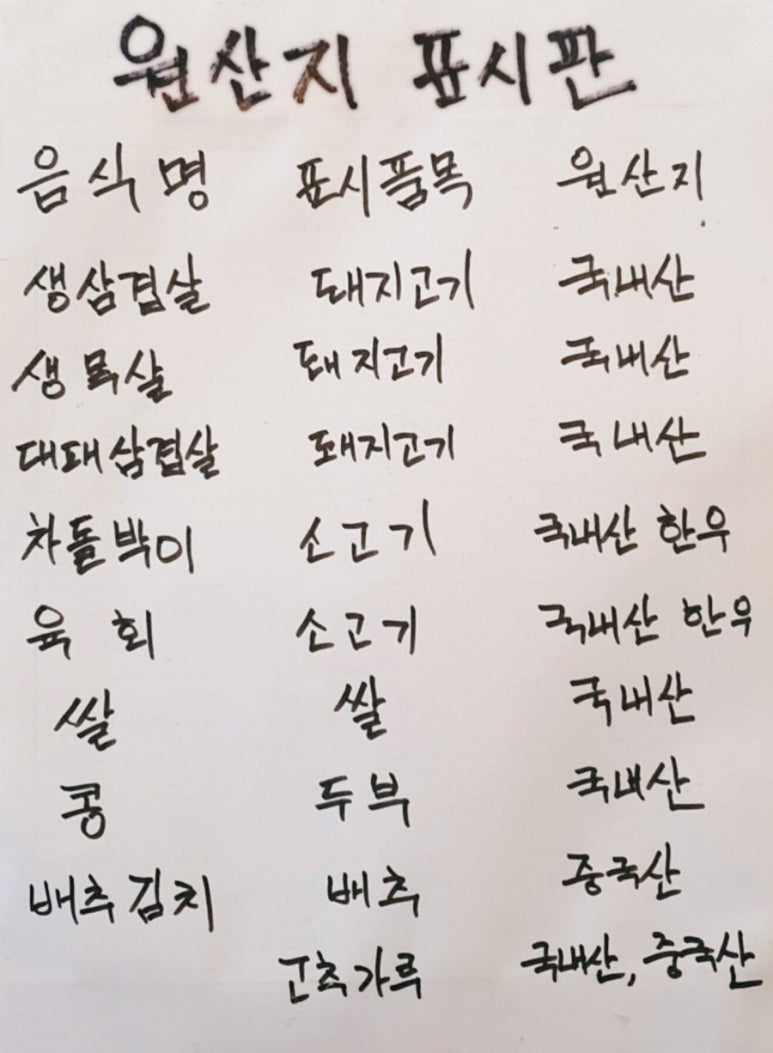 원산지 표시판
음식명 표시품목 원산지
생삼겹살 돼지고기 국내산
생목살 돼지고기 국내산
대패삼겹살 돼지고기 국내산
차돌박이 소고기 국내산 한우
육회 소고기 국내산 한우
쌀 쌀 국내산
콩 두부 국내산
배추김치 배추 중국산
고추가루 국내산, 중국산